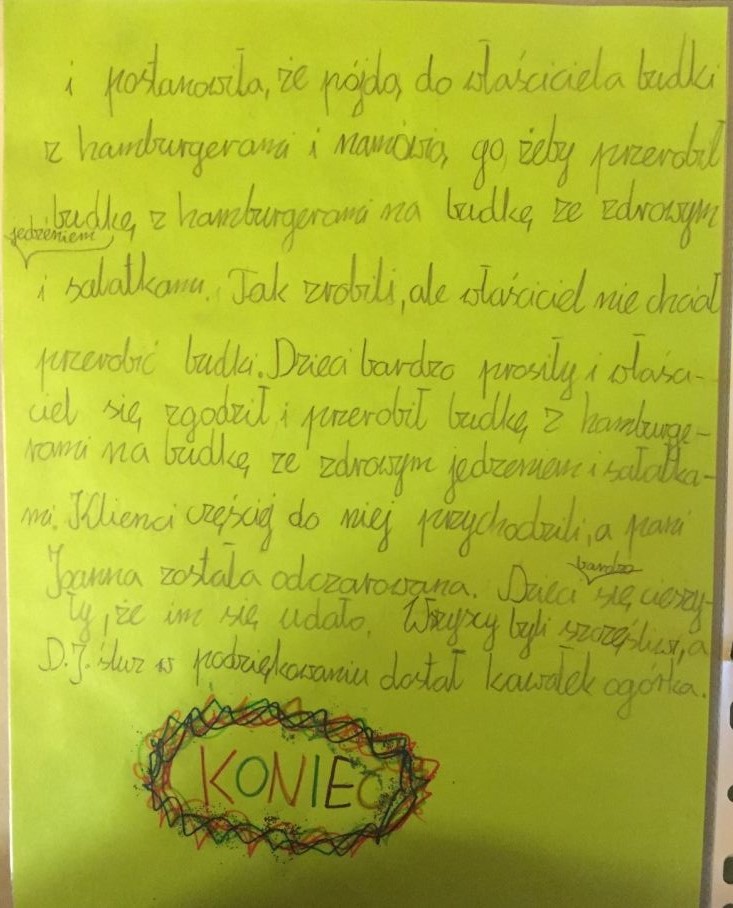 i postanowiła, że pójdą do właściciela budki
z hamburgerami i namówią go, żeby przerobił
budkę z hamburgerami na budkę ze zdrowym
jedzeniem
i sałatkami. Tak zrobili, ale właściciel nie chciał
przerobić budki. Dzieci bardzo prosiły i właści-
ciel się zgodził i przerobił budkę z hamburge-
rami na budkę ze zdrowym jedzeniem i sałatka-
mi. Klienci częściej do niej przychodzili, a pani
Joanna została odczarowana. Dzieci się cieszy-
bardzo
ły, że im się udało. Wszyscy byli szczęśliwi, a
D.J. ślur w podziękowaniu dostał kawałek ogórka.
KONIEC